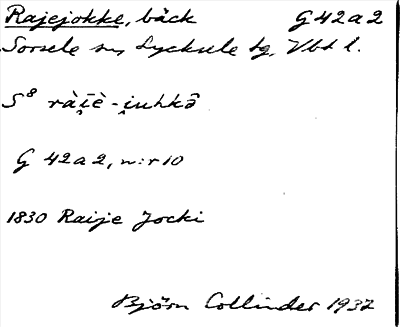 Rajejokke, bäck G 42 a 2
Sorsele sn, Lycksele tg, Vbt l.
S⁸
G 42 a 2, n:r 10
1830 Raije Jocki
Björn Collinder 1937